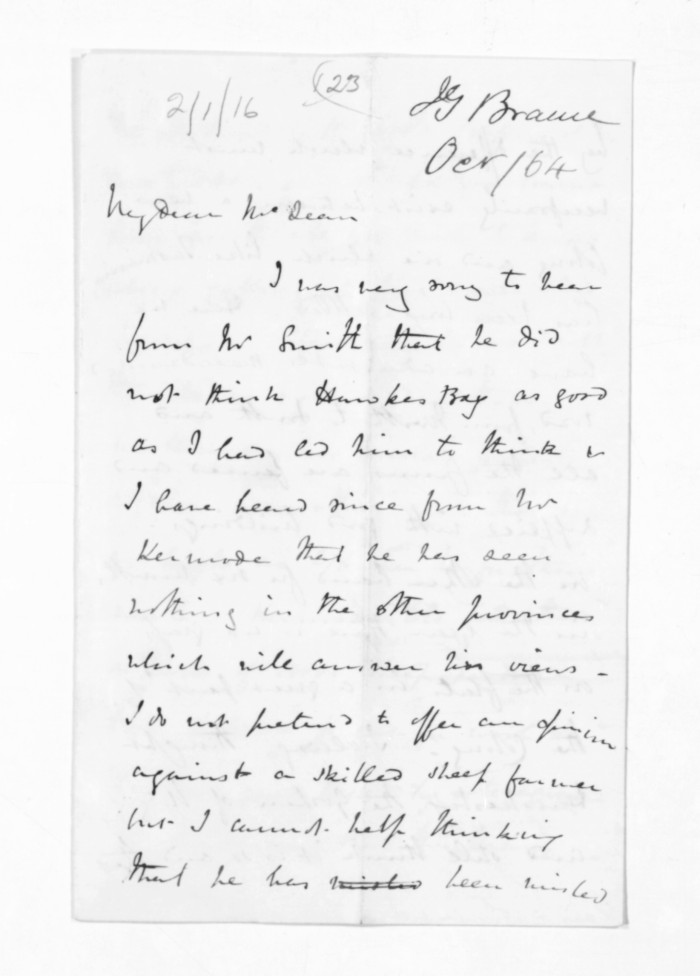 2/1/16
(23
JG Braune
Oct/64
My dear McLean
I was very sorry to hear
from Mr Smith that he did
not think Hawkes Bay as good
as I had led him to think &
I have heard since from Mr
Kermode that he has seen
nothing in the other provinces
which will answer his views -
I do not pretend to offer an opinion
against a skilled sheep farmer
but I cannot help thinking
that he has misled been misled